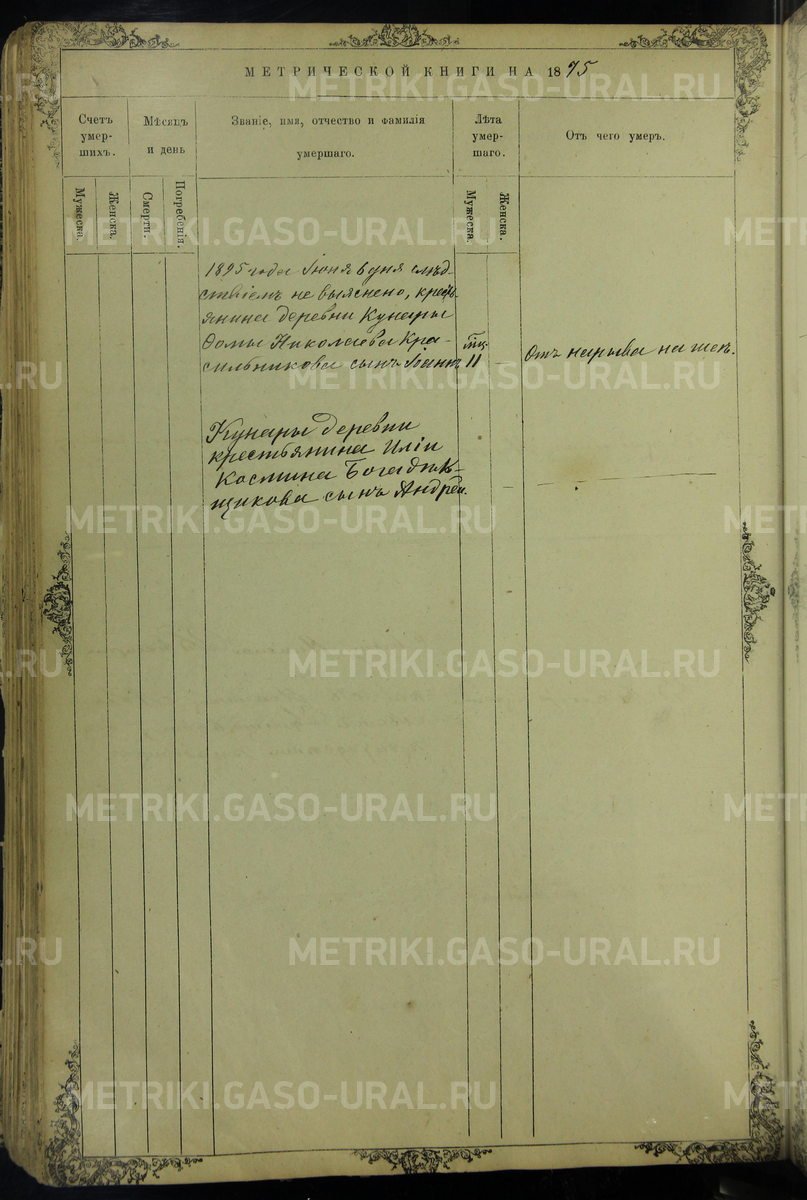 МЕТРИЧЕСКОЙ КНИГИ НА 1875
Счетъ умер-шихъ.
Мѣсяцъ и день
Званіе, имя, отчество и фамилія умершаго.
Лѣта умер-шаго.
Отъ чего умеръ.
Мужеска.
Женска.
Смерти.
Погребенія.
Мужеска.
Женска.
1895 года Іюня 6 дня слѣд-
ствіемъ не выяснено, кресть-
янина деревни Кунары
Ѳомы Николаева Кра-
сильникова сынъ Іоаннъ
11
Отъ нарыва на шеѣ.
Кунары деревни
крестьянина Иліи
Космина Богадѣль-
щикова сынъ Андрей.
METRIKI.GASO-URAL.RU